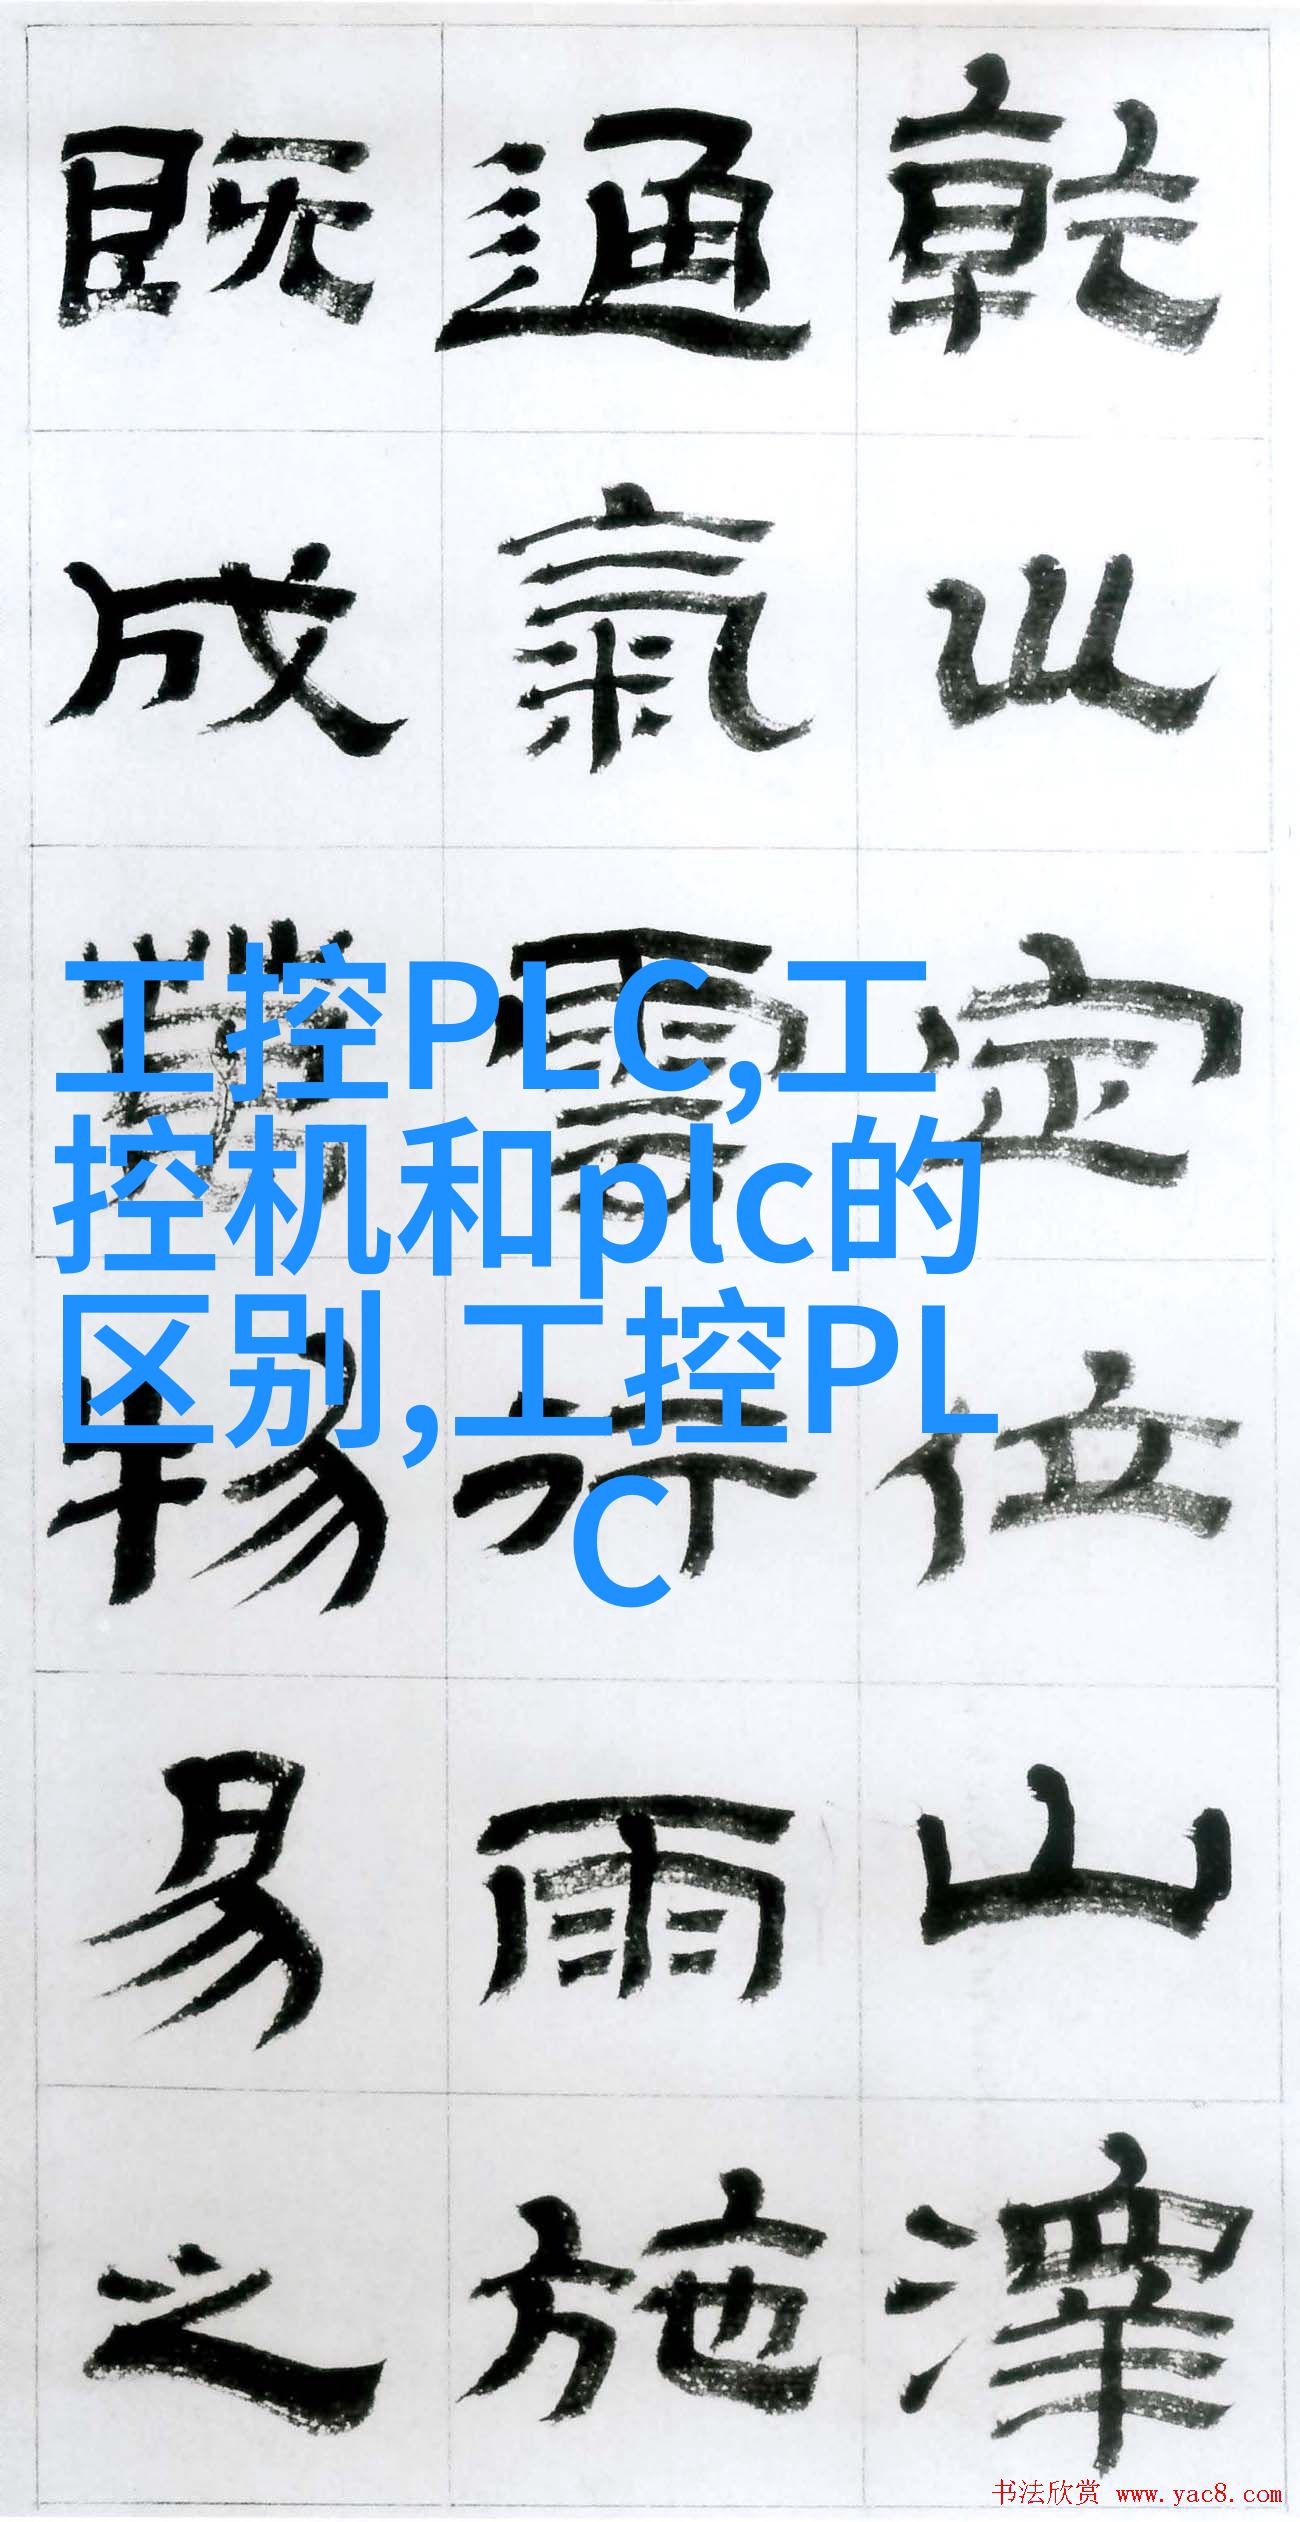 乾坤定位山澤
通氣雲行雨施
既成萬物易之
工控PLC,工
控机和plc的
区别,工控PL
C
书法欣赏 www.yac8.com